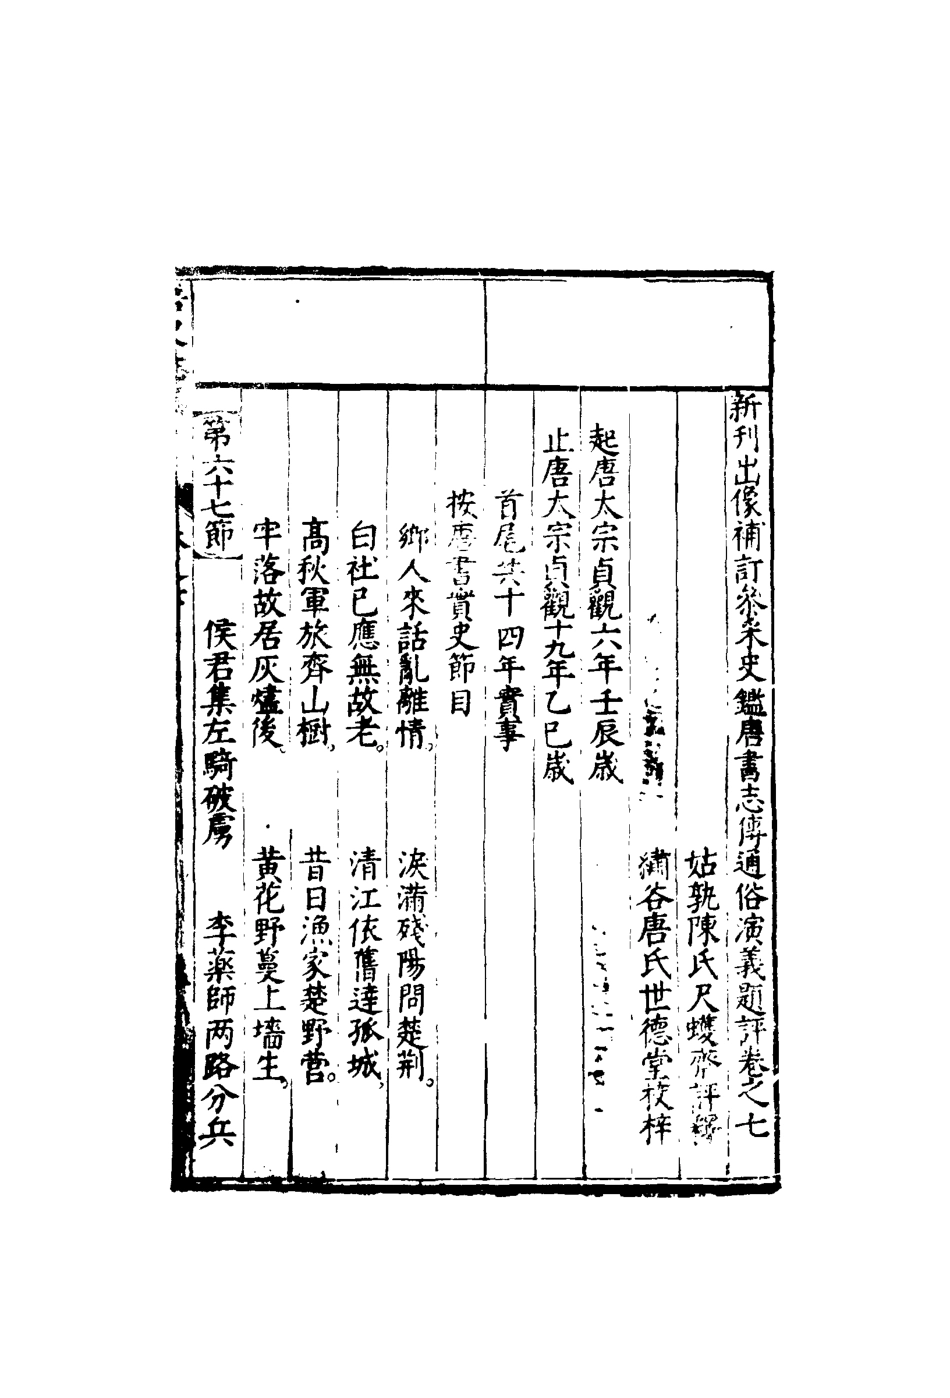 新刊出像補訂參采史鑑唐書志傳通俗演義題評卷之七
姑孰陳氏尺蠖齋評釋
繡谷唐氏世德堂校梓
起唐太宗貞觀六年壬辰歲
止唐太宗貞觀十九年乙巳歲
首尾共十四年實事
按唐書實史節目
鄉人來話亂離情 淚滿殘陽問楚荆
白社已應無故老 清江依舊遶孤城
高秋軍旅齊山樹 昔日漁家楚野營
牢落故居灰燼後 黃花野蔓上墻生
第六十七節 侯君集左騎破虜 李藥師两路分兵